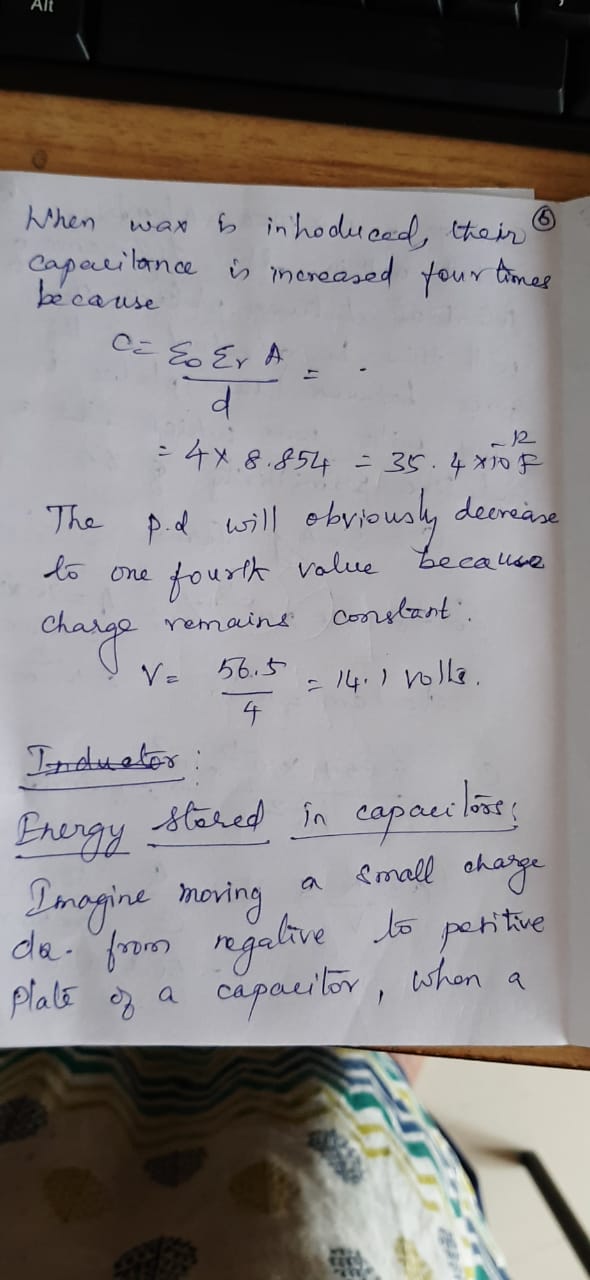 Alt
When wax is introduced, their ⑥
capacitance is increased four times
because
C = ε₀ εr A / d = .
= 4 × 8.854 = 35.4 × 10⁻¹² F
The p.d will obviously decrease
to one fourth value because
charge remains constant.
V = 56.5 / 4 = 14.1 volts.
Inductor :
Energy stored in capacitors:
Imagine moving a small charge
dq. from negative to positive
plate of a capacitor, when a